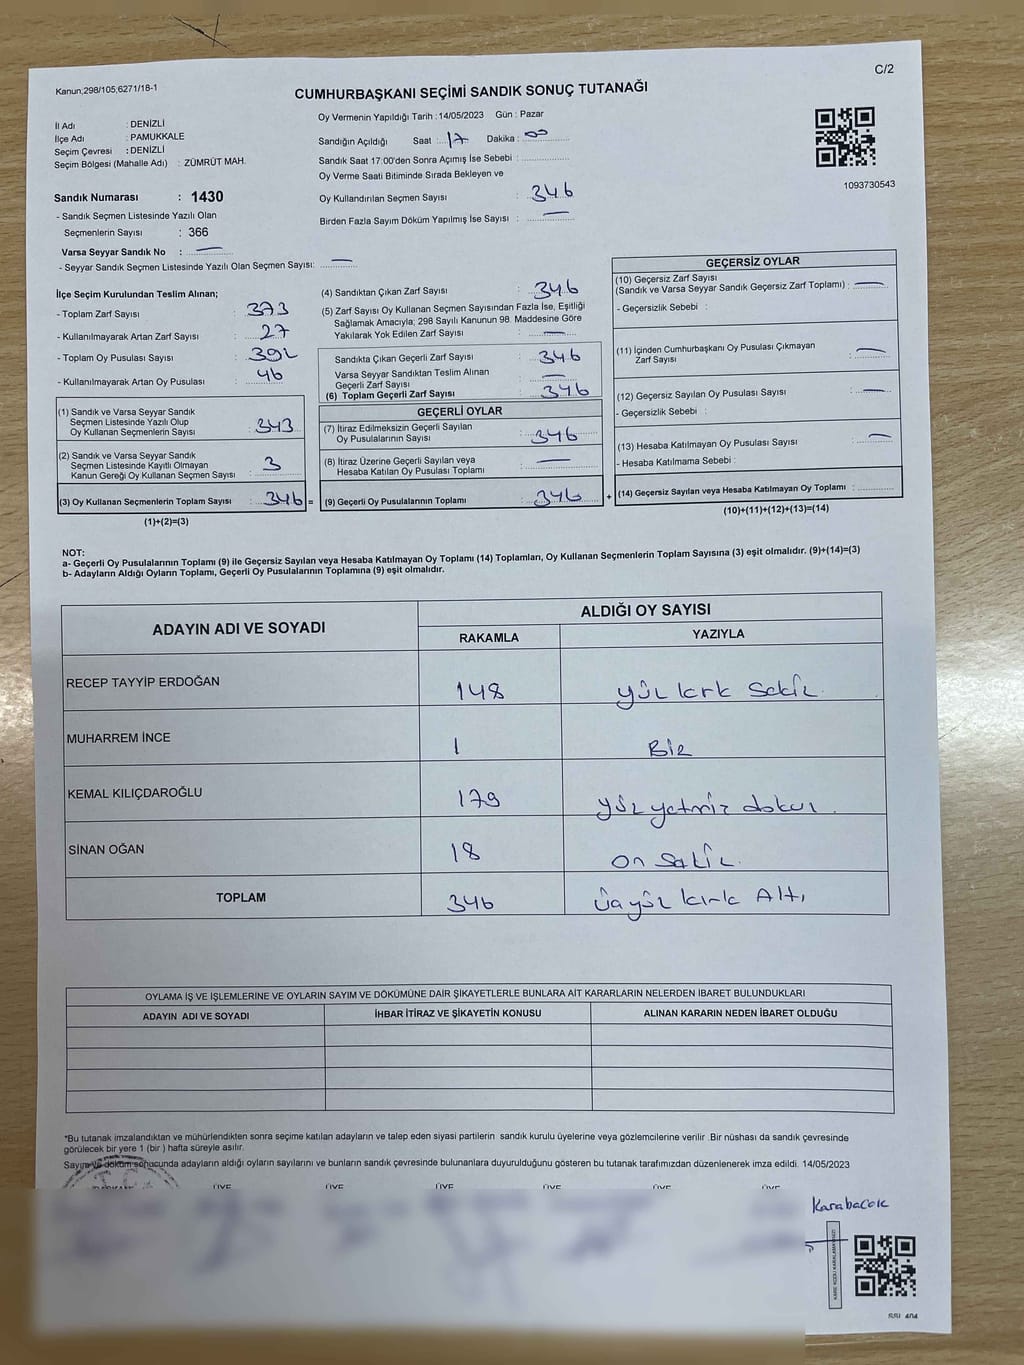 C/2
Kanun;298/105;6271/18-1
CUMHURBAŞKANI SEÇİMİ SANDIK SONUÇ TUTANAĞI
İl Adı : DENİZLİ
İlçe Adı : PAMUKKALE
Seçim Çevresi : DENİZLİ
Seçim Bölgesi (Mahalle Adı) : ZÜMRÜT MAH.
Sandık Numarası : 1430
- Sandık Seçmen Listesinde Yazılı Olan
Seçmenlerin Sayısı : 366
Varsa Seyyar Sandık No : —
- Seyyar Sandık Seçmen Listesinde Yazılı Olan Seçmen Sayısı: —
Oy Vermenin Yapıldığı Tarih :14/05/2023 Gün : Pazar
Sandığın Açıldığı Saat : 17 Dakika : 00
Sandık Saat 17:00'den Sonra Açımış İse Sebebi :
Oy Verme Saati Bitiminde Sırada Bekleyen ve
Oy Kullandırılan Seçmen Sayısı : 346
Birden Fazla Sayım Döküm Yapılmış İse Sayısı : —
1093730543
İlçe Seçim Kurulundan Teslim Alınan;
- Toplam Zarf Sayısı : 373
- Kullanılmayarak Artan Zarf Sayısı : 27
- Toplam Oy Pusulası Sayısı : 392
- Kullanılmayarak Artan Oy Pusulası : 46
(1) Sandık ve Varsa Seyyar Sandık
Seçmen Listesinde Yazılı Olup
Oy Kullanan Seçmenlerin Sayısı : 343
(2) Sandık ve Varsa Seyyar Sandık
Seçmen Listesinde Kayıtlı Olmayan
Kanun Gereği Oy Kullanan Seçmen Sayısı : 3
(3) Oy Kullanan Seçmenlerin Toplam Sayısı : 346 =
(1)+(2)=(3)
(4) Sandıktan Çıkan Zarf Sayısı : 346
(5) Zarf Sayısı Oy Kullanan Seçmen Sayısından Fazla İse, Eşitliği
Sağlamak Amacıyla; 298 Sayılı Kanunun 98. Maddesine Göre
Yakılarak Yok Edilen Zarf Sayısı : —
Sandıkta Çıkan Geçerli Zarf Sayısı : 346
Varsa Seyyar Sandıktan Teslim Alınan
Geçerli Zarf Sayısı : —
(6) Toplam Geçerli Zarf Sayısı : 346
GEÇERLİ OYLAR
(7) İtiraz Edilmeksizin Geçerli Sayılan
Oy Pusulalarının Sayısı : 346
(8) İtiraz Üzerine Geçerli Sayılan veya
Hesaba Katılan Oy Pusulası Toplamı : —
(9) Geçerli Oy Pusulalarının Toplamı : 346 +
GEÇERSİZ OYLAR
(10) Geçersiz Zarf Sayısı
(Sandık ve Varsa Seyyar Sandık Geçersiz Zarf Toplamı) : —
- Geçersizlik Sebebi :
(11) İçinden Cumhurbaşkanı Oy Pusulası Çıkmayan
Zarf Sayısı : —
(12) Geçersiz Sayılan Oy Pusulası Sayısı : —
- Geçersizlik Sebebi :
(13) Hesaba Katılmayan Oy Pusulası Sayısı : —
- Hesaba Katılmama Sebebi :
(14) Geçersiz Sayılan veya Hesaba Katılmayan Oy Toplamı :
(10)+(11)+(12)+(13)=(14)
NOT:
a- Geçerli Oy Pusulalarının Toplamı (9) ile Geçersiz Sayılan veya Hesaba Katılmayan Oy Toplamı (14) Toplamları, Oy Kullanan Seçmenlerin Toplam Sayısına (3) eşit olmalıdır. (9)+(14)=(3)
b- Adayların Aldığı Oyların Toplamı, Geçerli Oy Pusulalarının Toplamına (9) eşit olmalıdır.
ADAYIN ADI VE SOYADI
ALDIĞI OY SAYISI
RAKAMLA YAZIYLA
RECEP TAYYİP ERDOĞAN 148 yüz kırk Sekiz
MUHARREM İNCE 1 Bir
KEMAL KILIÇDAROĞLU 179 yüz yetmiş dokuz
SİNAN OĞAN 18 on Sekiz
TOPLAM 346 üçyüz kırk Altı
OYLAMA İŞ VE İŞLEMLERİNE VE OYLARIN SAYIM VE DÖKÜMÜNE DAİR ŞİKAYETLERLE BUNLARA AİT KARARLARIN NELERDEN İBARET BULUNDUKLARI
ADAYIN ADI VE SOYADI İHBAR İTİRAZ VE ŞİKAYETİN KONUSU ALINAN KARARIN NEDEN İBARET OLDUĞU
*Bu tutanak imzalandıktan ve mühürlendikten sonra seçime katılan adayların ve talep eden siyasi partilerin sandık kurulu üyelerine veya gözlemcilerine verilir .Bir nüshası da sandık çevresinde
görülecek bir yere 1 (bir ) hafta süreyle asılır.
Sayım ve döküm sonucunda adayların aldığı oyların sayılarını ve bunların sandık çevresinde bulunanlara duyurulduğunu gösteren bu tutanak tarafımızdan düzenlenerek imza edildi. 14/05/2023
ÜYE ÜYE ÜYE ÜYE ÜYE ÜYE
Karabacak